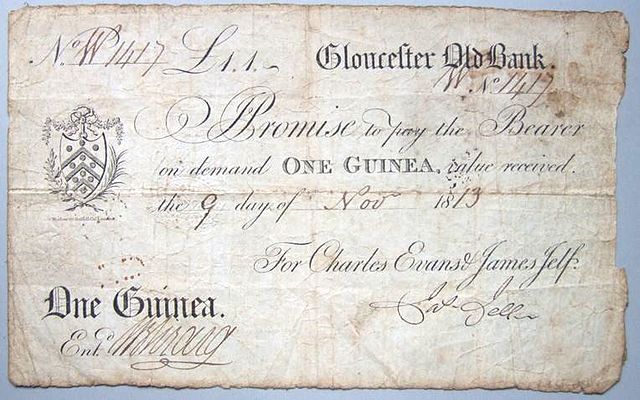 No. W 1417 £1.1.~ Gloucester Old Bank.
W No. 1417
I Promise to pay the Bearer
on demand ONE GUINEA, value received.
the 9 day of Nov 1813
For Charles Evans & James Jelf.
One Guinea.
Entd.